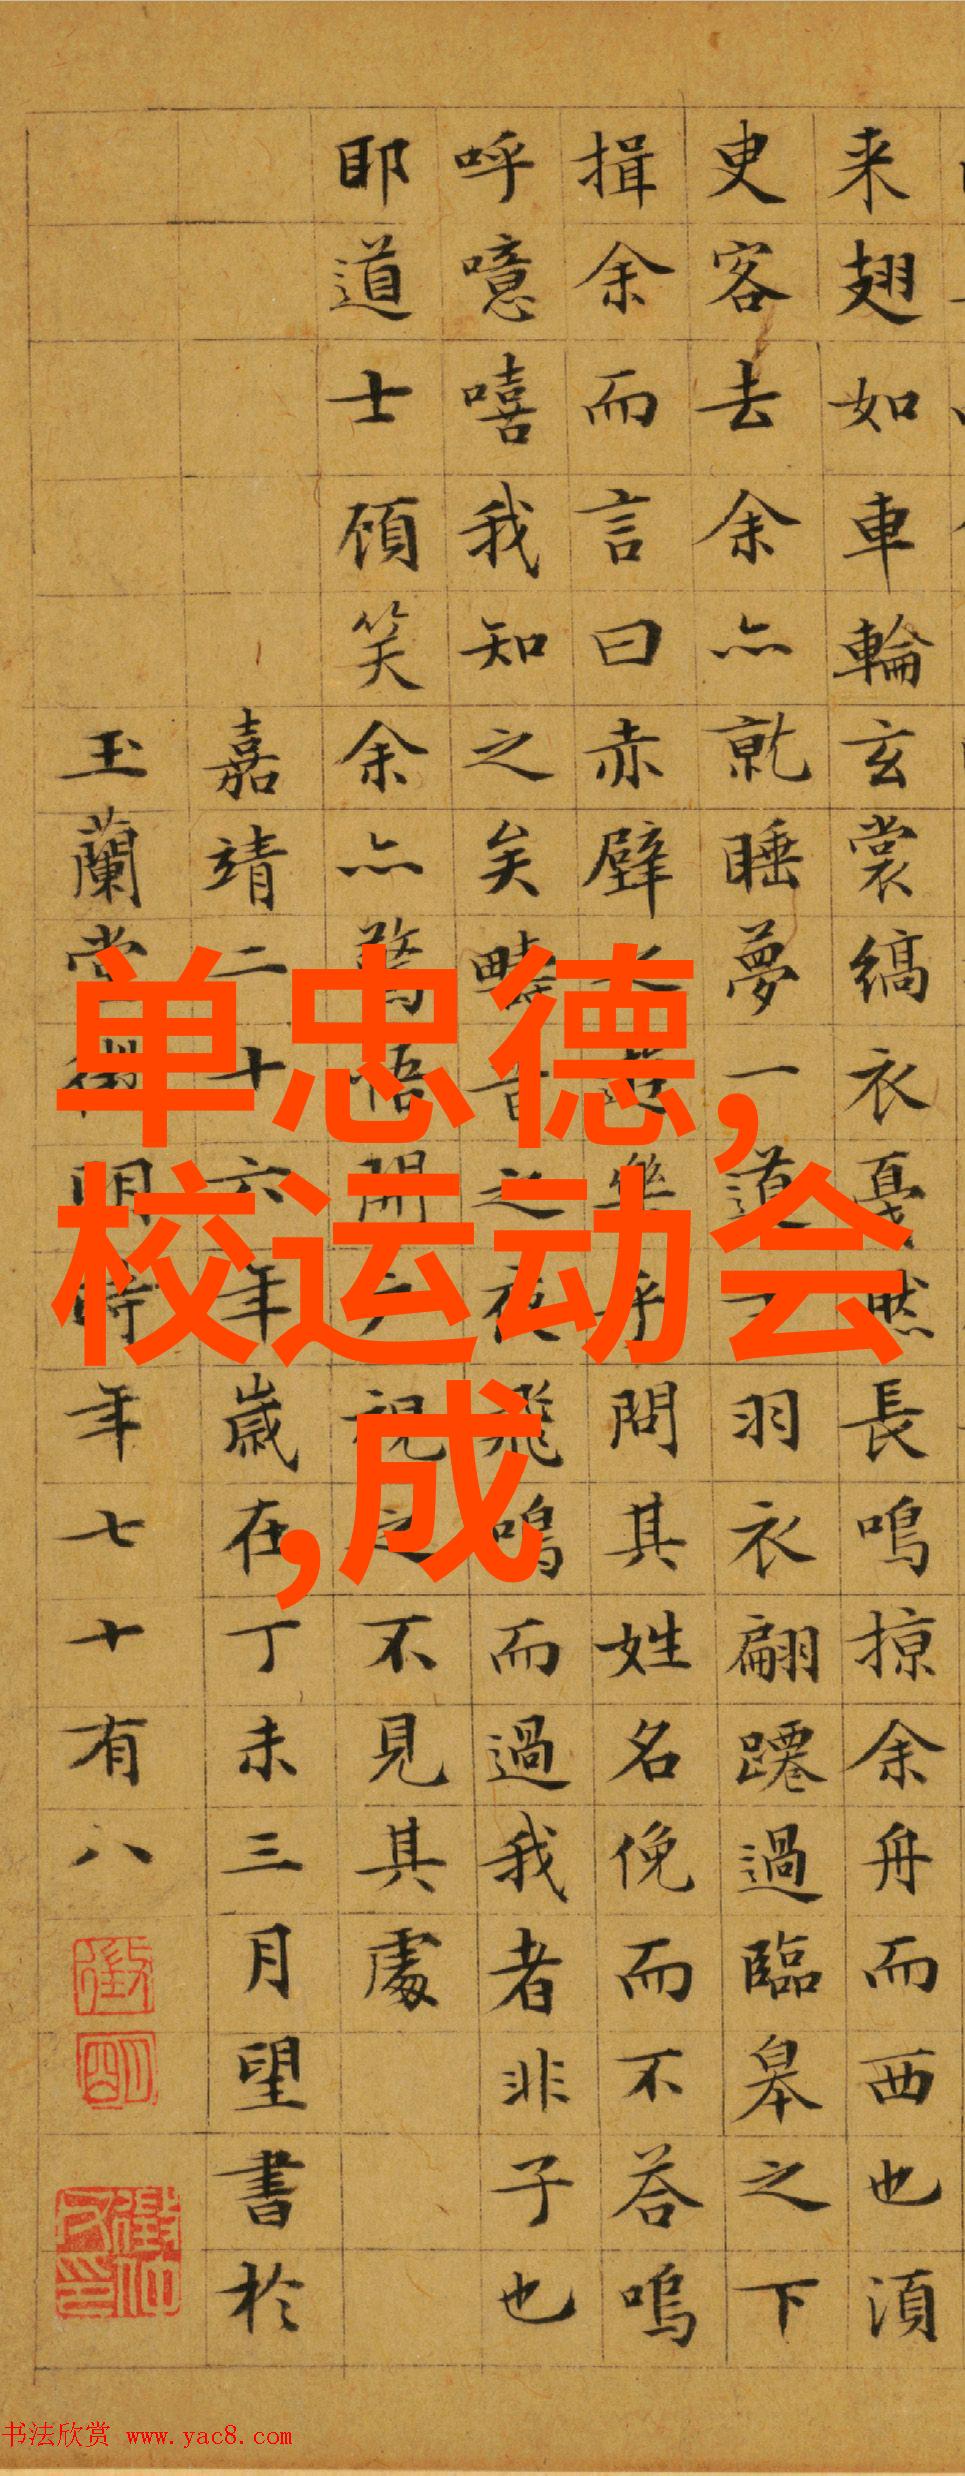 单忠德,
校运动会
,成
来翅如車輪玄裳縞衣戛然長鳴掠余舟而西也湏
臾客去余亦就睡夢一道士羽衣翩躚過臨皋之下
揖余而言曰赤壁之遊樂乎問其姓名俛而不答嗚
呼噫嘻我知之矣疇昔之夜飛鳴而過我者非子也
耶道士顧笑余亦驚悟開戶視之不見其處
嘉靖二十六年歲在丁未三月望書於
玉蘭堂徵明時年七十有八
徵
明
书法欣赏 www.yac8.com